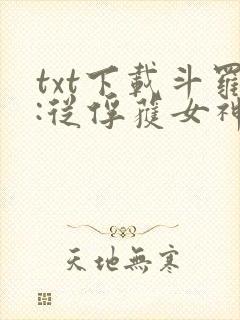 txt下載斗羅
:從俘獲女神
天地無寒